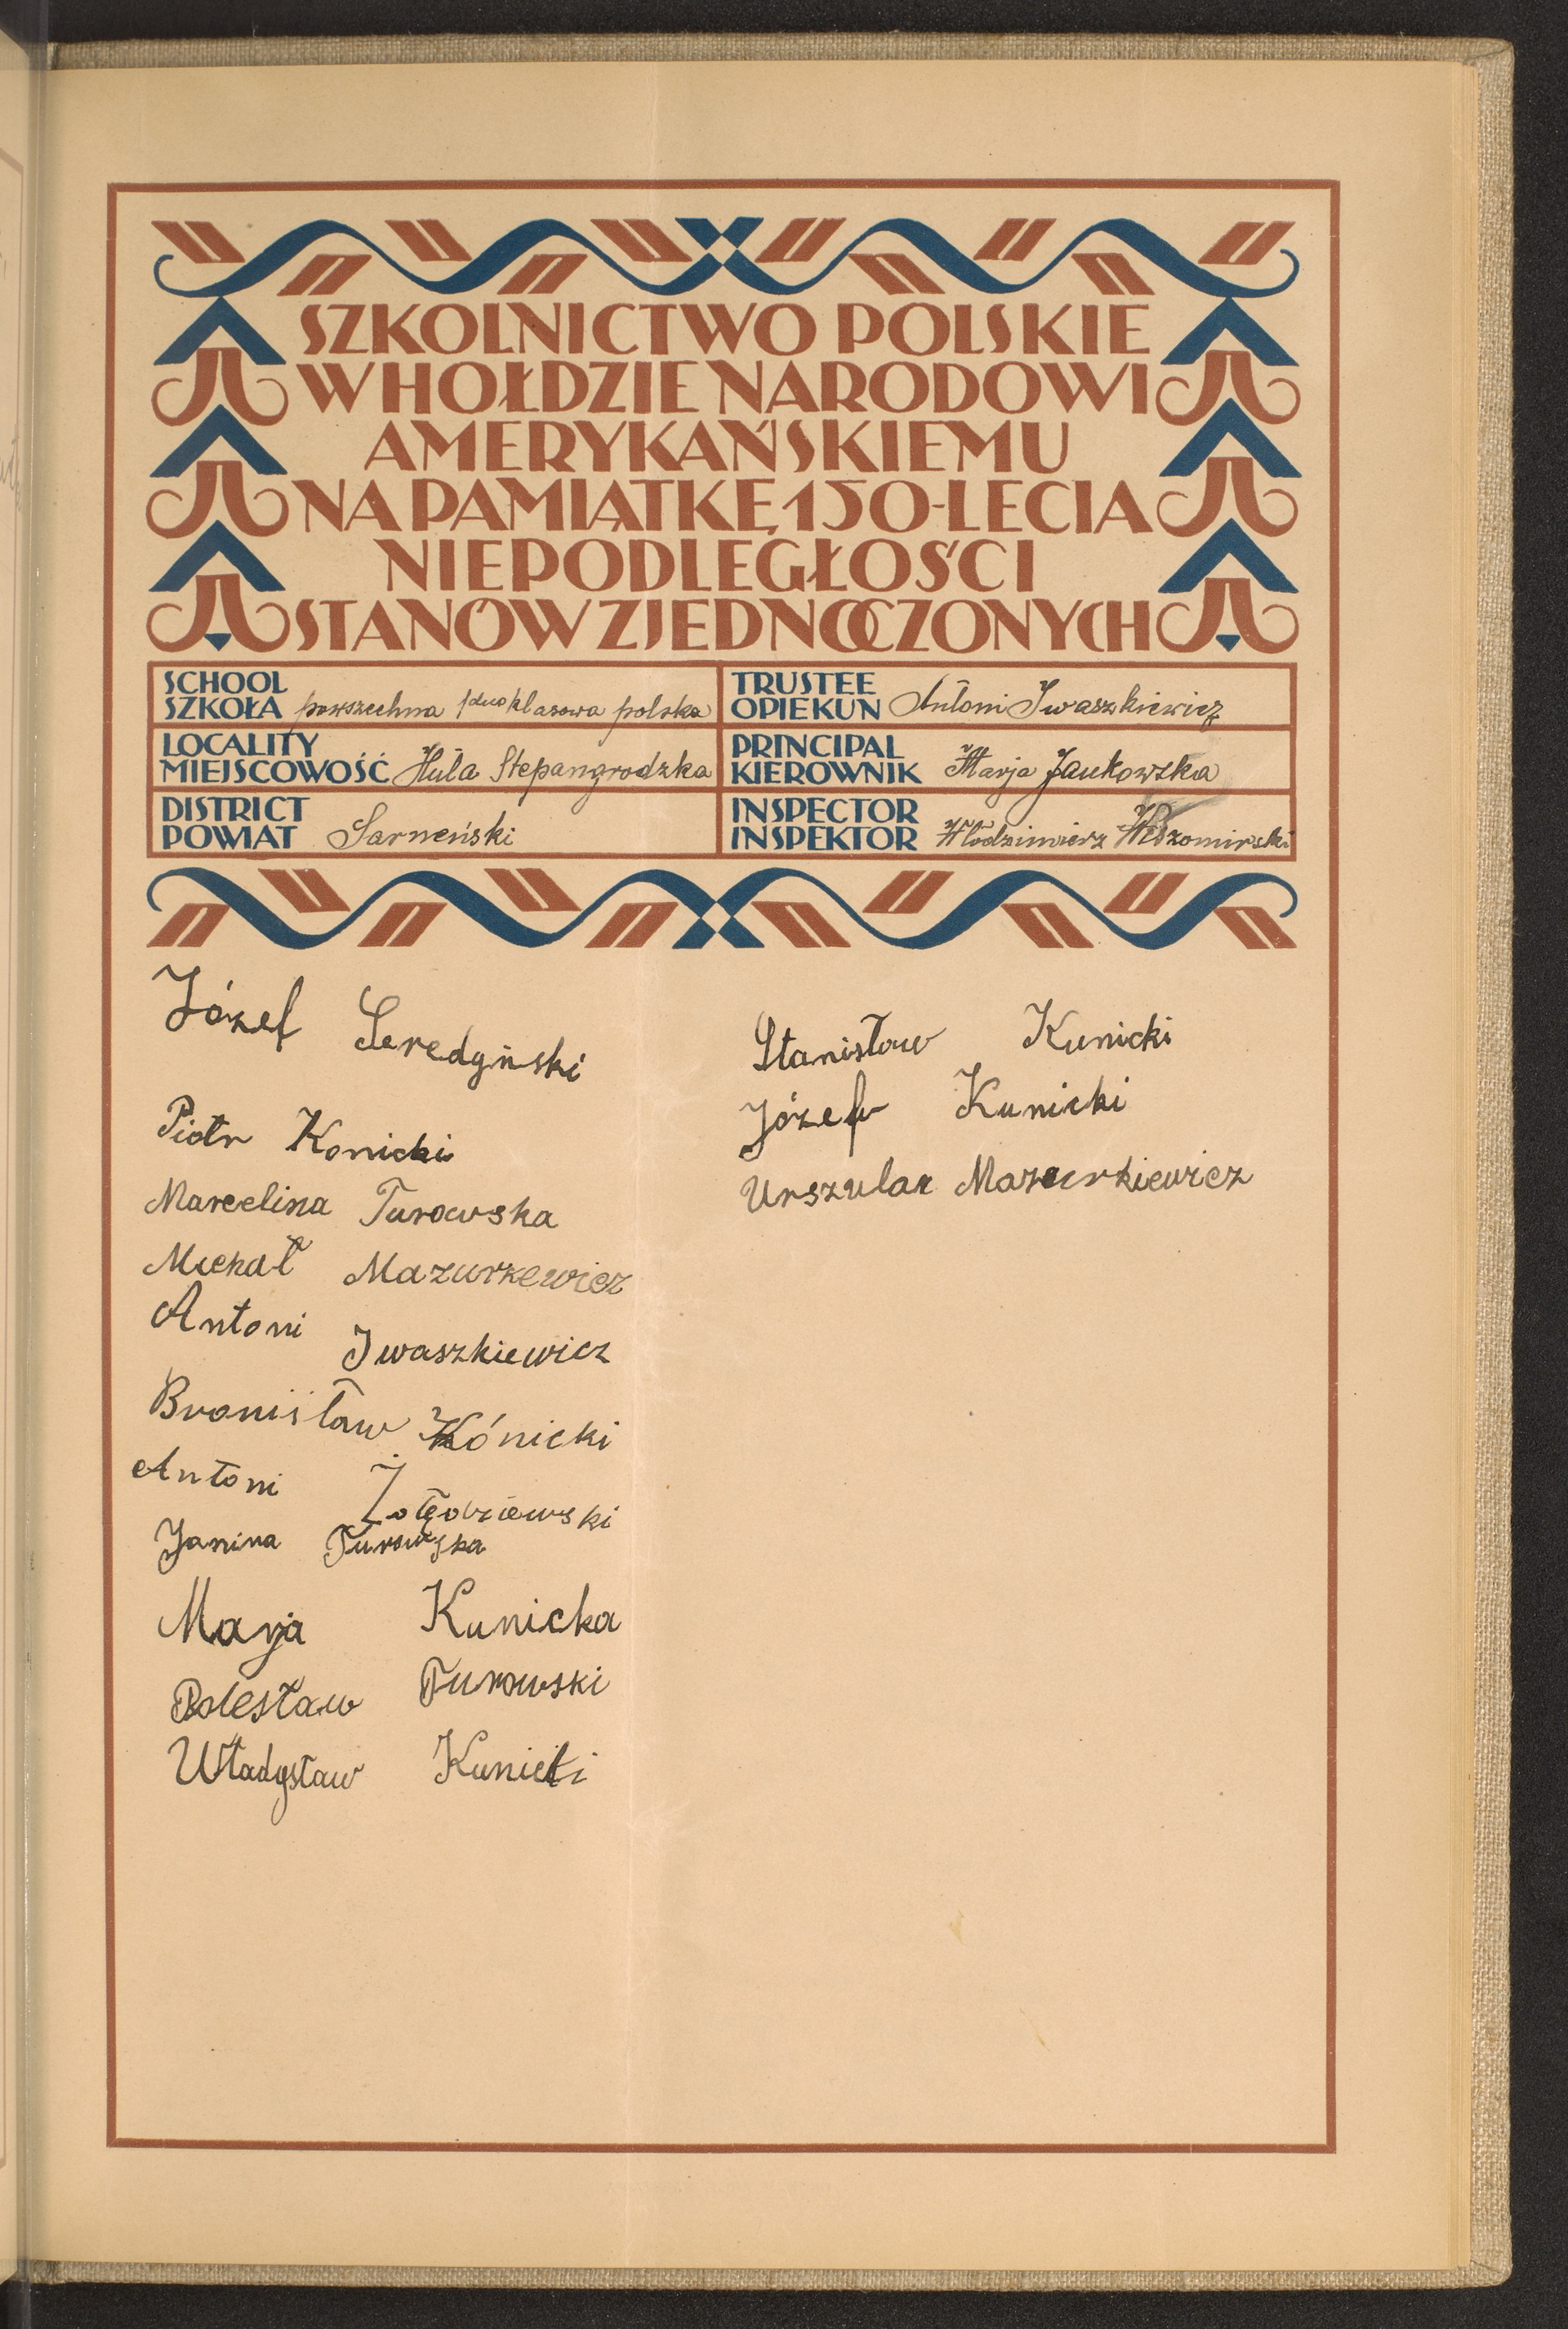 SZKOLNICTWO POLSKIE
W HOŁDZIE NARODOWI
AMERYKAŃSKIEMU
NA PAMIĄTKĘ 150-LECIA
NIEPODLEGŁOŚCI
STANÓW ZJEDNOCZONYCH
SCHOOL
SZKOŁA powszechna /dwo/klasowa polska
TRUSTEE
OPIEKUN Antoni Iwaszkiewicz
LOCALITY
MIEJSCOWOŚĆ Huta Stepangrodzka
PRINCIPAL
KIEROWNIK Marja Jankowska
DISTRICT
POWIAT Sarneński
INSPECTOR
INSPEKTOR Włodzimierz
Józef Seredyński
Piotr Konicki
Marcelina Turowska
Michał Mazurkewicz
Antoni Iwaszkiewicz
Bronisław Kónicki
Antoni
Janina Turowska
Marja Kunicka
Bolesław Turowski
Władysław Kunicki
Stanisław Kunicki
Józef Kunicki
Urszula Mazurkiewicz